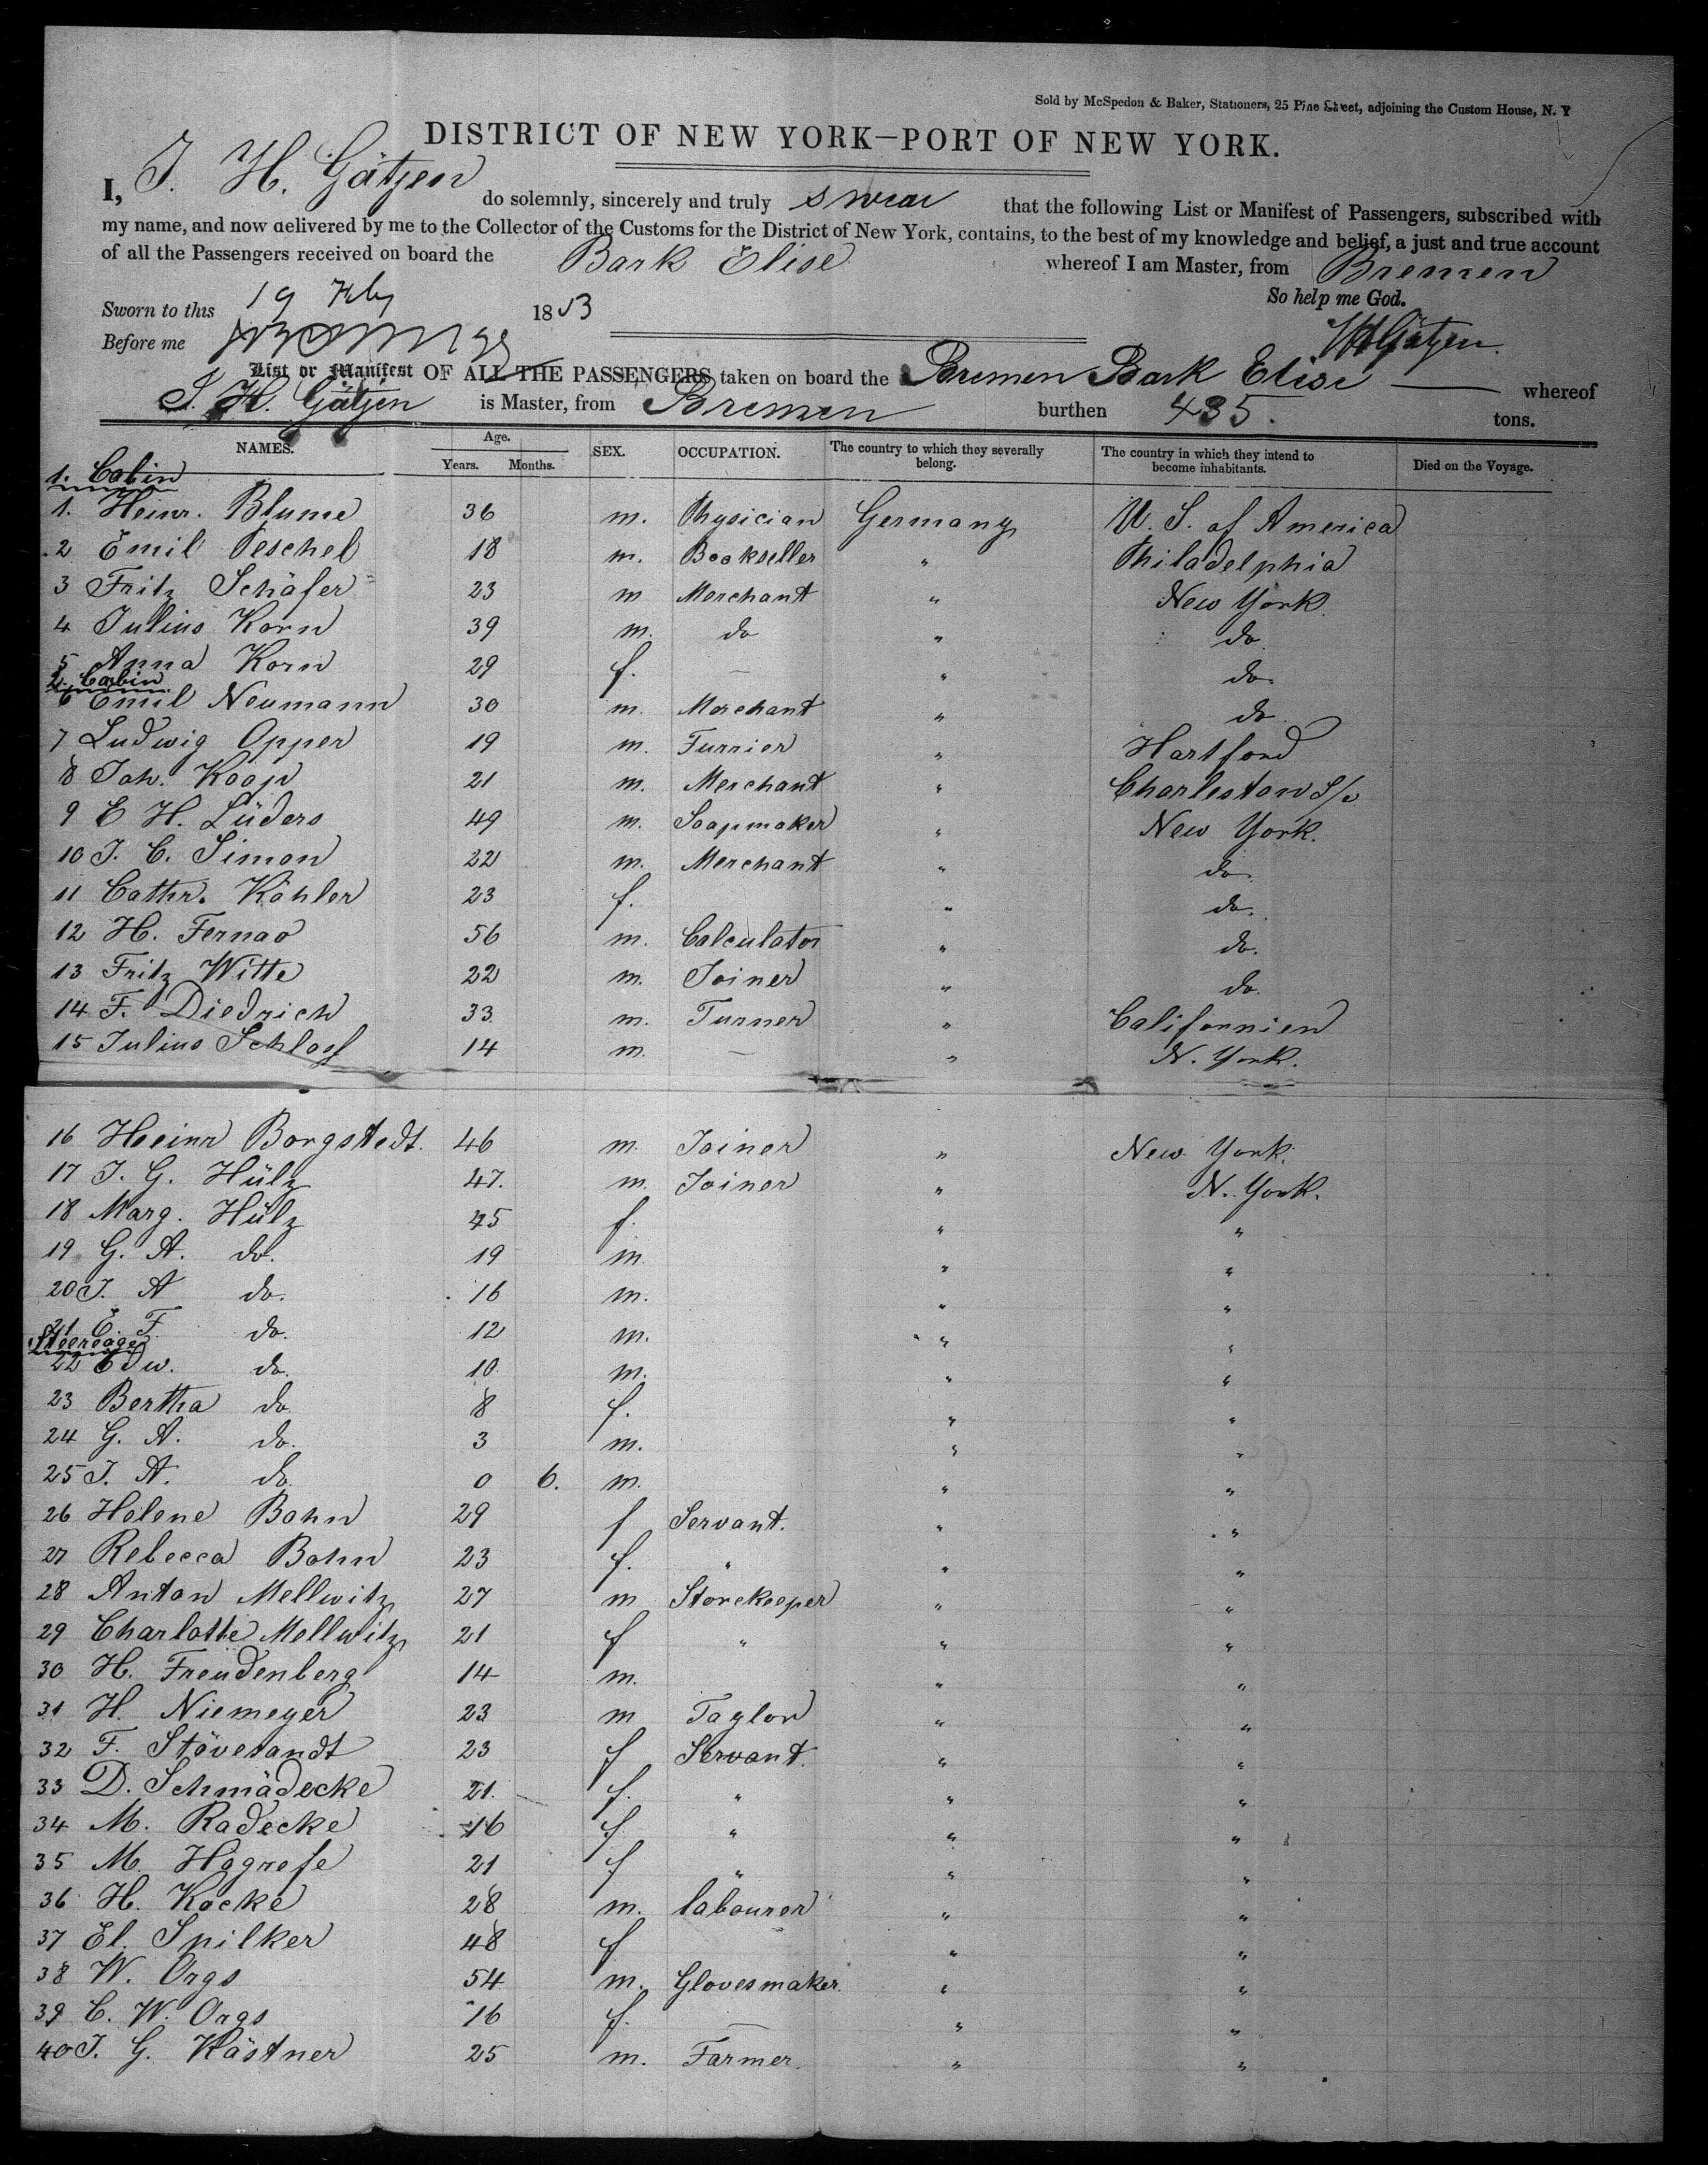 Sold by McSpedon & Baker, Stationers, 25 Pine Street, adjoining the Custom House, N. Y
DISTRICT OF NEW YORK—PORT OF NEW YORK.
I, J. H. Gätjen do solemnly, sincerely and truly swear that the following List or Manifest of Passengers, subscribed with
my name, and now delivered by me to the Collector of the Customs for the District of New York, contains, to the best of my knowledge and belief, a just and true account
of all the Passengers received on board the Bark Elise whereof I am Master, from Bremen
So help me God.
Sworn to this 19 1853
Before me
JHGätjen
List or Manifest OF ALL THE PASSENGERS taken on board the Bremen Bark Elise whereof
J. H. Gätjen is Master, from Bremen burthen 435. tons.
NAMES. Age. Years. Months. SEX. OCCUPATION. The country to which they severally belong. The country in which they intend to become inhabitants. Died on the Voyage.
1. Cabin
1. Heinr. Blume 36 m. Physician Germany U. S. of America
2 Emil Peschel 18 m. Bookseller " Philadelphia
3 Fritz Schäfer 23 m Merchant " New York
4 Julius Korn 39 m. do " do
5 Anna Korn 29 f. — " do.
2. Cabin
6 Emil Neumann 30 m. Merchant " do
7 Ludwig Opper 19 m. Furrier " Hartford
8 Joh. Koop 21 m. Merchant " Charleston S/c
9 E H. Lüders 49 m. Soapmaker " New York.
10 J. C. Simon 22 m. Merchant " do.
11 Cathr. Köhler 23 f. " do.
12 H. Fernao 56 m. Calculator " do.
13 Fritz Witte 22 m. Joiner " do.
14 F. Diedrich 33 m. Turner " Californien
15 Julius Schloss 14 m. — " N. York.
16 Heeinr Borgstedt. 46 m. Joiner " New York.
17 J. G. Hülz 47. m. Joiner " N. York.
18 Marg. Hülz 45 f. " "
19 G. A. do. 19 m. " "
20 J. A do. 16 m. " "
21 E. F. do. 12 m. " "
Steerage
22 Edw. do. 10. m. " "
23 Bertha do 8 f. " "
24 G. A. do. 3 m. " "
25 J. A. do 0 6. m. " "
26 Helene Bohn 29 f Servant. " "
27 Rebecca Bohn 23 f. " " "
28 Anton Mellwitz 27 m Storekeeper " "
29 Charlotte Mellwitz 21 f " " "
30 H. Freudenberg 14 m. " "
31 H. Niemeyer 23 m Taylor " "
32 F. Stövesandt 23 f Servant. " "
33 D. Schmädecke 21. f. " " "
34 M. Radecke 16 f " " "
35 M. Hogrefe 21 f " " "
36 H. Kocke 28 m. labourer " "
37 El. Spilker 48 f " "
38 W. Orgs 54 m. Glovesmaker. " "
39 C. W. Orgs 16 f. — " "
40 J. G. Kästner 25 m. Farmer. " "